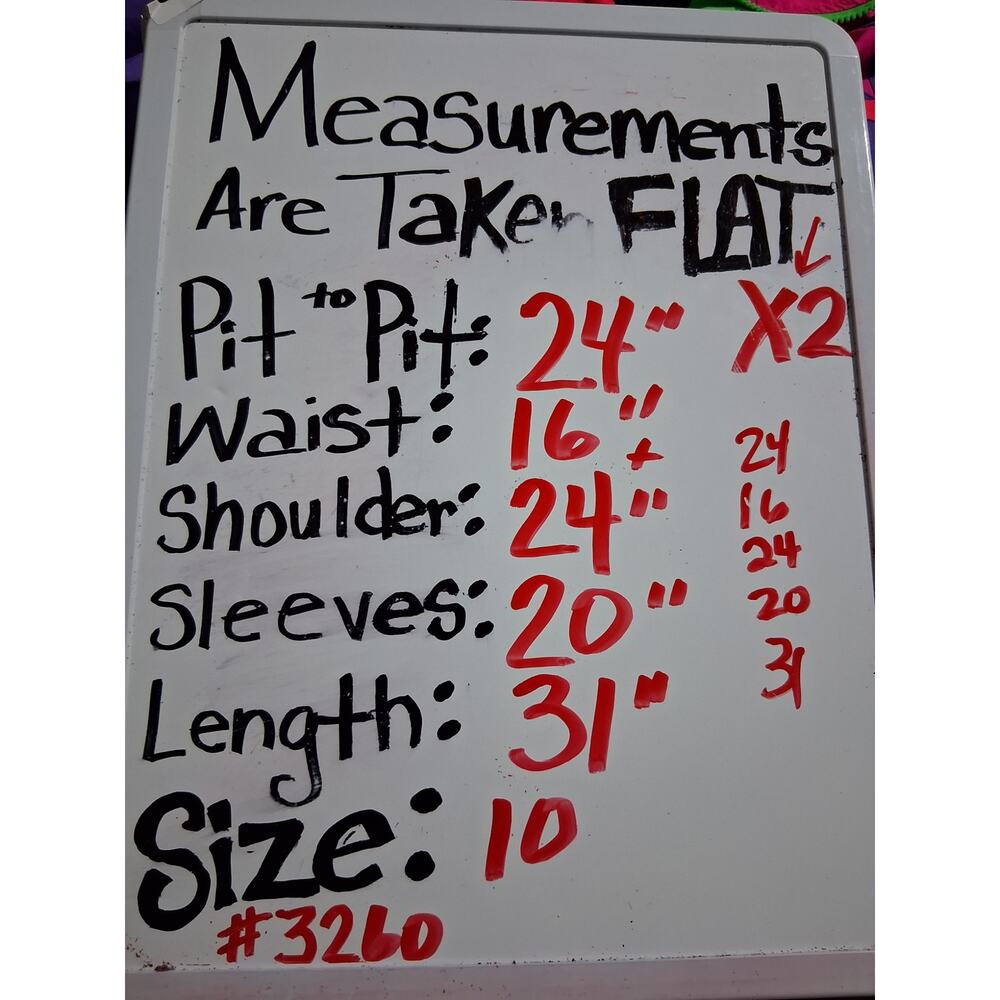 Measurements
Are Taken FLAT
↓
Pit to Pit: 24" X2
Waist: 16"+
24
Shoulder: 24"
16
24
Sleeves: 20"
20
Length: 31"
31
Size: 10
#3260